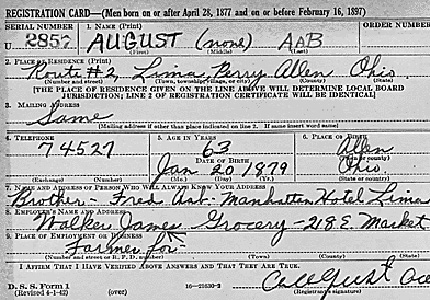 REGISTRATION CARD—(Men born on or after April 28, 1877 and on or before February 16, 1897)
SERIAL NUMBER 1. NAME (Print) ORDER NUMBER
U. 2857 AUGUST (none) AAB
(First) (Middle) (Last)
2. PLACE OF RESIDENCE (Print)
Route #2, Lima Perry Allen Ohio
(Number and street) (Town, township, village, or city) (County) (State)
[THE PLACE OF RESIDENCE GIVEN ON THE LINE ABOVE WILL DETERMINE LOCAL BOARD
JURISDICTION; LINE 2 OF REGISTRATION CERTIFICATE WILL BE IDENTICAL]
3. MAILING ADDRESS
Same
(Mailing address if other than place indicated on line 2. If same insert word same)
4. TELEPHONE 5. AGE IN YEARS 6. PLACE OF BIRTH
74527 63 Allen
DATE OF BIRTH (Town or county)
Jan 20 1879 Ohio
(Exchange) (Number) (Mo.) (Day) (Yr.) (State or country)
7. NAME AND ADDRESS OF PERSON WHO WILL ALWAYS KNOW YOUR ADDRESS
Brother - Fred Aab - Manhattan Hotel Lima
8. EMPLOYER'S NAME AND ADDRESS
Walker James Grocery - 218 E. Market
9. PLACE OF EMPLOYMENT OR BUSINESS
Farmer for
(Number and street or R. F. D. number) (Town) (County) (State)
I AFFIRM THAT I HAVE VERIFIED ABOVE ANSWERS AND THAT THEY ARE TRUE.
D. S. S. Form 1
(Revised 4-1-42) (over) 16—21630-2 August
(Registrant's signature)